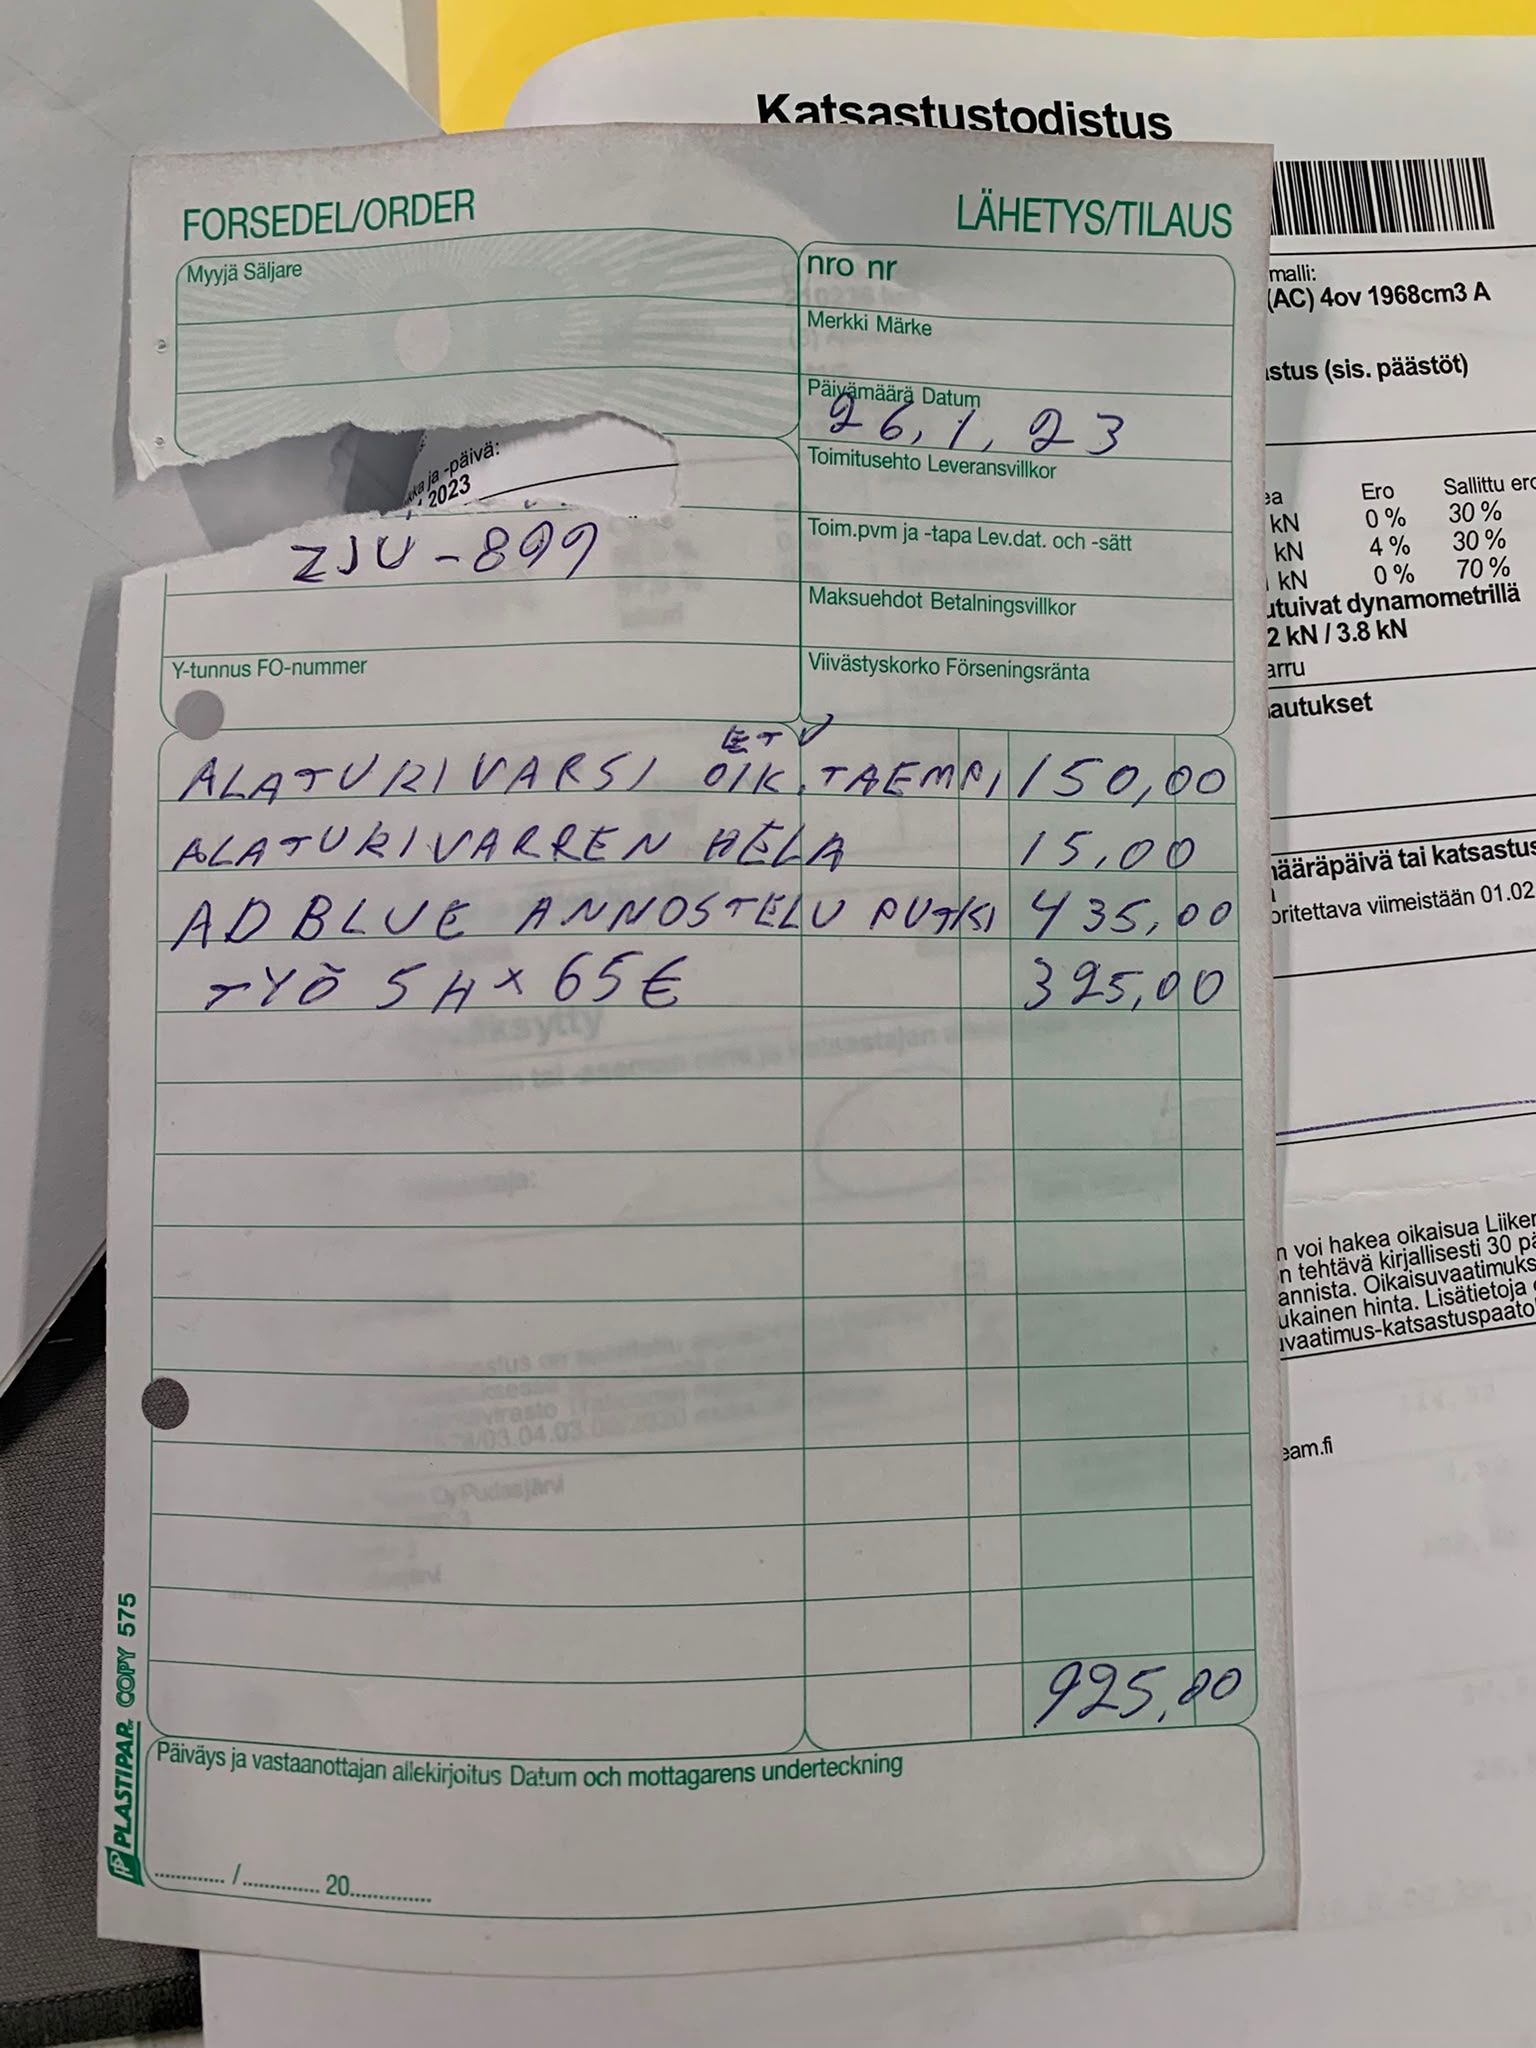 Katsastustodistus
FORSEDEL/ORDER
LÄHETYS/TILAUS
Myyjä Säljare
nro nr
Merkki Märke
Päivämäärä Datum
26,1,23
Toimitusehto Leveransvillkor
Toim.pvm ja -tapa Lev.dat. och -sätt
Maksuehdot Betalningsvillkor
Viivästyskorko Förseningsränta
ja -päivä:
2023
ZJU-899
Y-tunnus FO-nummer
ET
ALATURIVARSI OIK. TAEMPI 150,00
ALATURIVARREN HELA 15,00
AD BLUE ANNOSTELU PUTKI 435,00
TYÖ 5 H x 65€ 325,00
925,00
Päiväys ja vastaanottajan allekirjoitus Datum och mottagarens underteckning
............ / ............. 20.............
PLASTIPAR COPY 575
malli:
(AC) 4ov 1968cm3 A
(sis. päästöt)
Ero Sallittu
kN 0 % 30 %
kN 4 % 30 %
kN 0 % 70 %
dynamometrillä
2 kN / 3.8 kN
tai
viimeistään 01.02
voi hakea oikaisua
tehtävä kirjallisesti 30
hinta. Lisätietoja
eam.fi